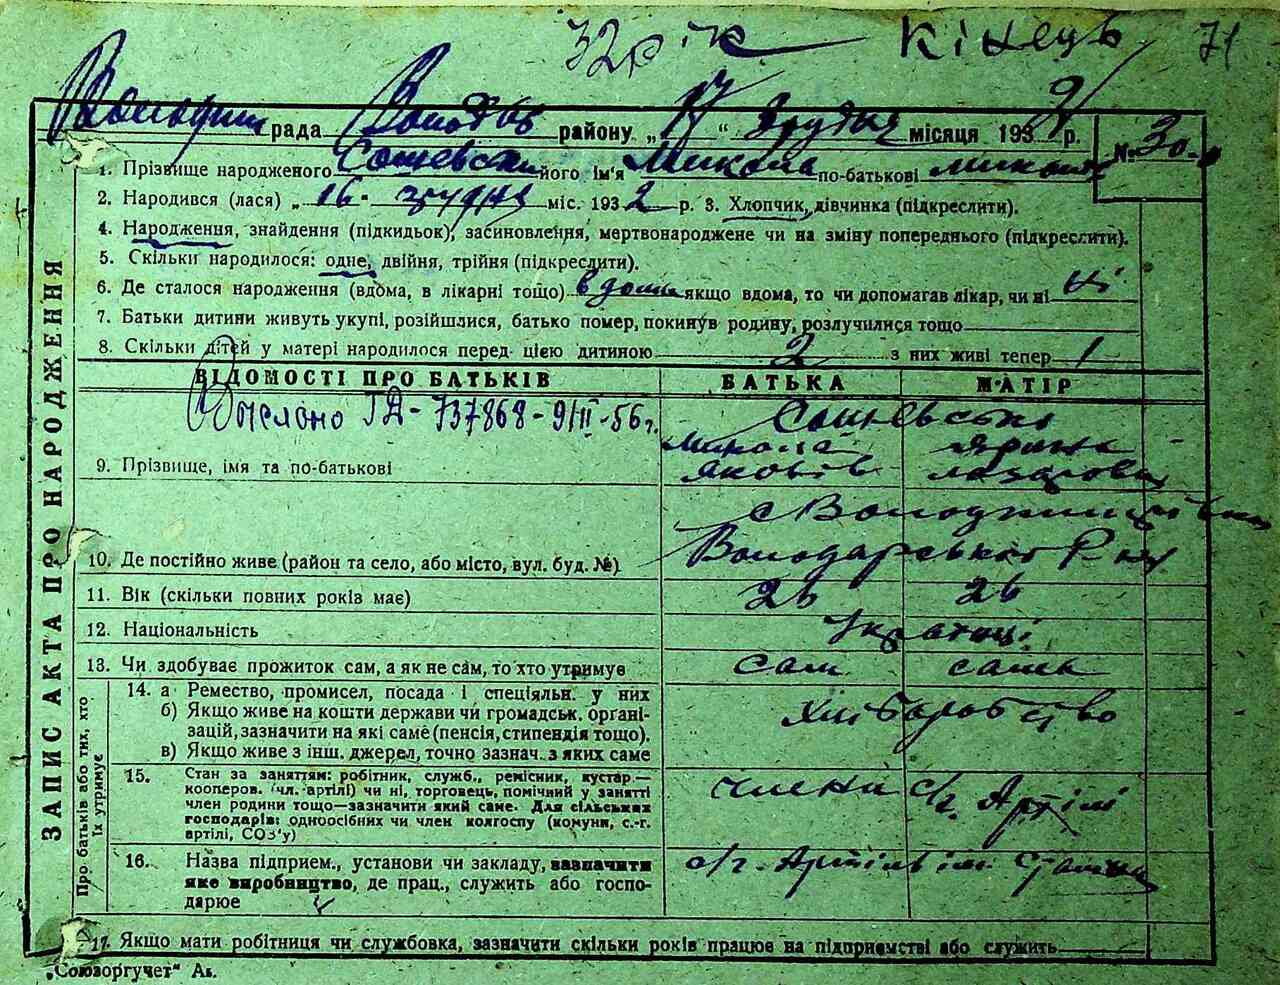 32 рік Кінець 71
рада Володар району „17“ Грудня місяця 1932 р. № 30
1. Прізвище народженого його ім'я Микола по-батькові
2. Народився (лася) „16" грудня міс. 1932 р. 3. Хлопчик, дівчинка (підкреслити).
4. Народження, знайдення (підкидьок), засиновлення, мертвонароджене чи на зміну попереднього (підкреслити).
5. Скільки народилося: одне, двійня, трійня (підкреслити).
6. Де сталося народження (вдома, в лікарні тощо) вдома якщо вдома, то чи допомагав лікар, чи ні ні
7. Батьки дитини живуть укупі, розійшлися, батько помер, покинув родину, розлучилися тощо
8. Скільки дітей у матері народилося перед цією дитиною 2 з них живі тепер 1
ВІДОМОСТІ ПРО БАТЬКІВ БАТЬКА МАТІР
Выслано ІД-737868-9/III-56г.
Микола Ярина
9. Прізвище, ім'я та по-батькові Яковів Лазарова
10. Де постійно живе (район та село, або місто, вул. буд. №) Володарського р-ну
11. Вік (скільки повних років має) 26 26
12. Національність Українці
13. Чи здобуває прожиток сам, а як не сам, то хто утримує сам сама
Про батьків або тих, хто їх утримує
14. а Ремество, промисел, посада і спеціяльн. у них
б) Якщо живе на кошти держави чи громадськ. організацій, зазначити на які саме (пенсія, стипендія тощо). Хліборобство
в) Якщо живе з інш. джерел, точно зазнач. з яких саме
15. Стан за заняттям: робітник, служб., ремісник, кустар—
кооперов. (чл. артілі) чи ні, торговець, помічний у занятті члени с/г. Артілі
член родини тощо—зазначити який саме. Для сільських
господарів: одноосібних чи член колгоспу (комуни, с.-г.
артілі, СОЗ'у)
16. Назва підприєм., установи чи закладу, зазначити с/г. Артіль ім.
яке виробництво, де прац., служить або господарює
17. Якщо мати робітниця чи службовка, зазначити скільки років працює на підприємстві або служить
„Союзоргучет“
ЗАПИС АКТА ПРО НАРОДЖЕННЯ